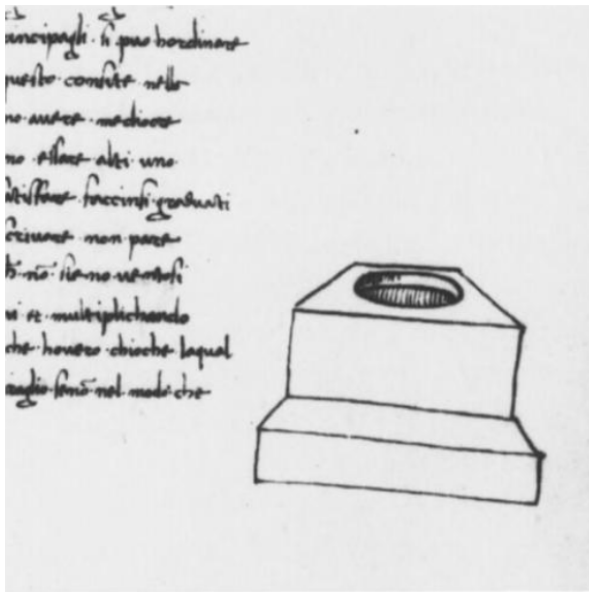 principagli · si puo hordinare
questo consiste nelle
no avere mediocre
no essere alti uno
faccinsi graduati
scrivare non pare
nō sieno ventosi
et multiplichando
che hovero chioche laqual
senō nel modo che